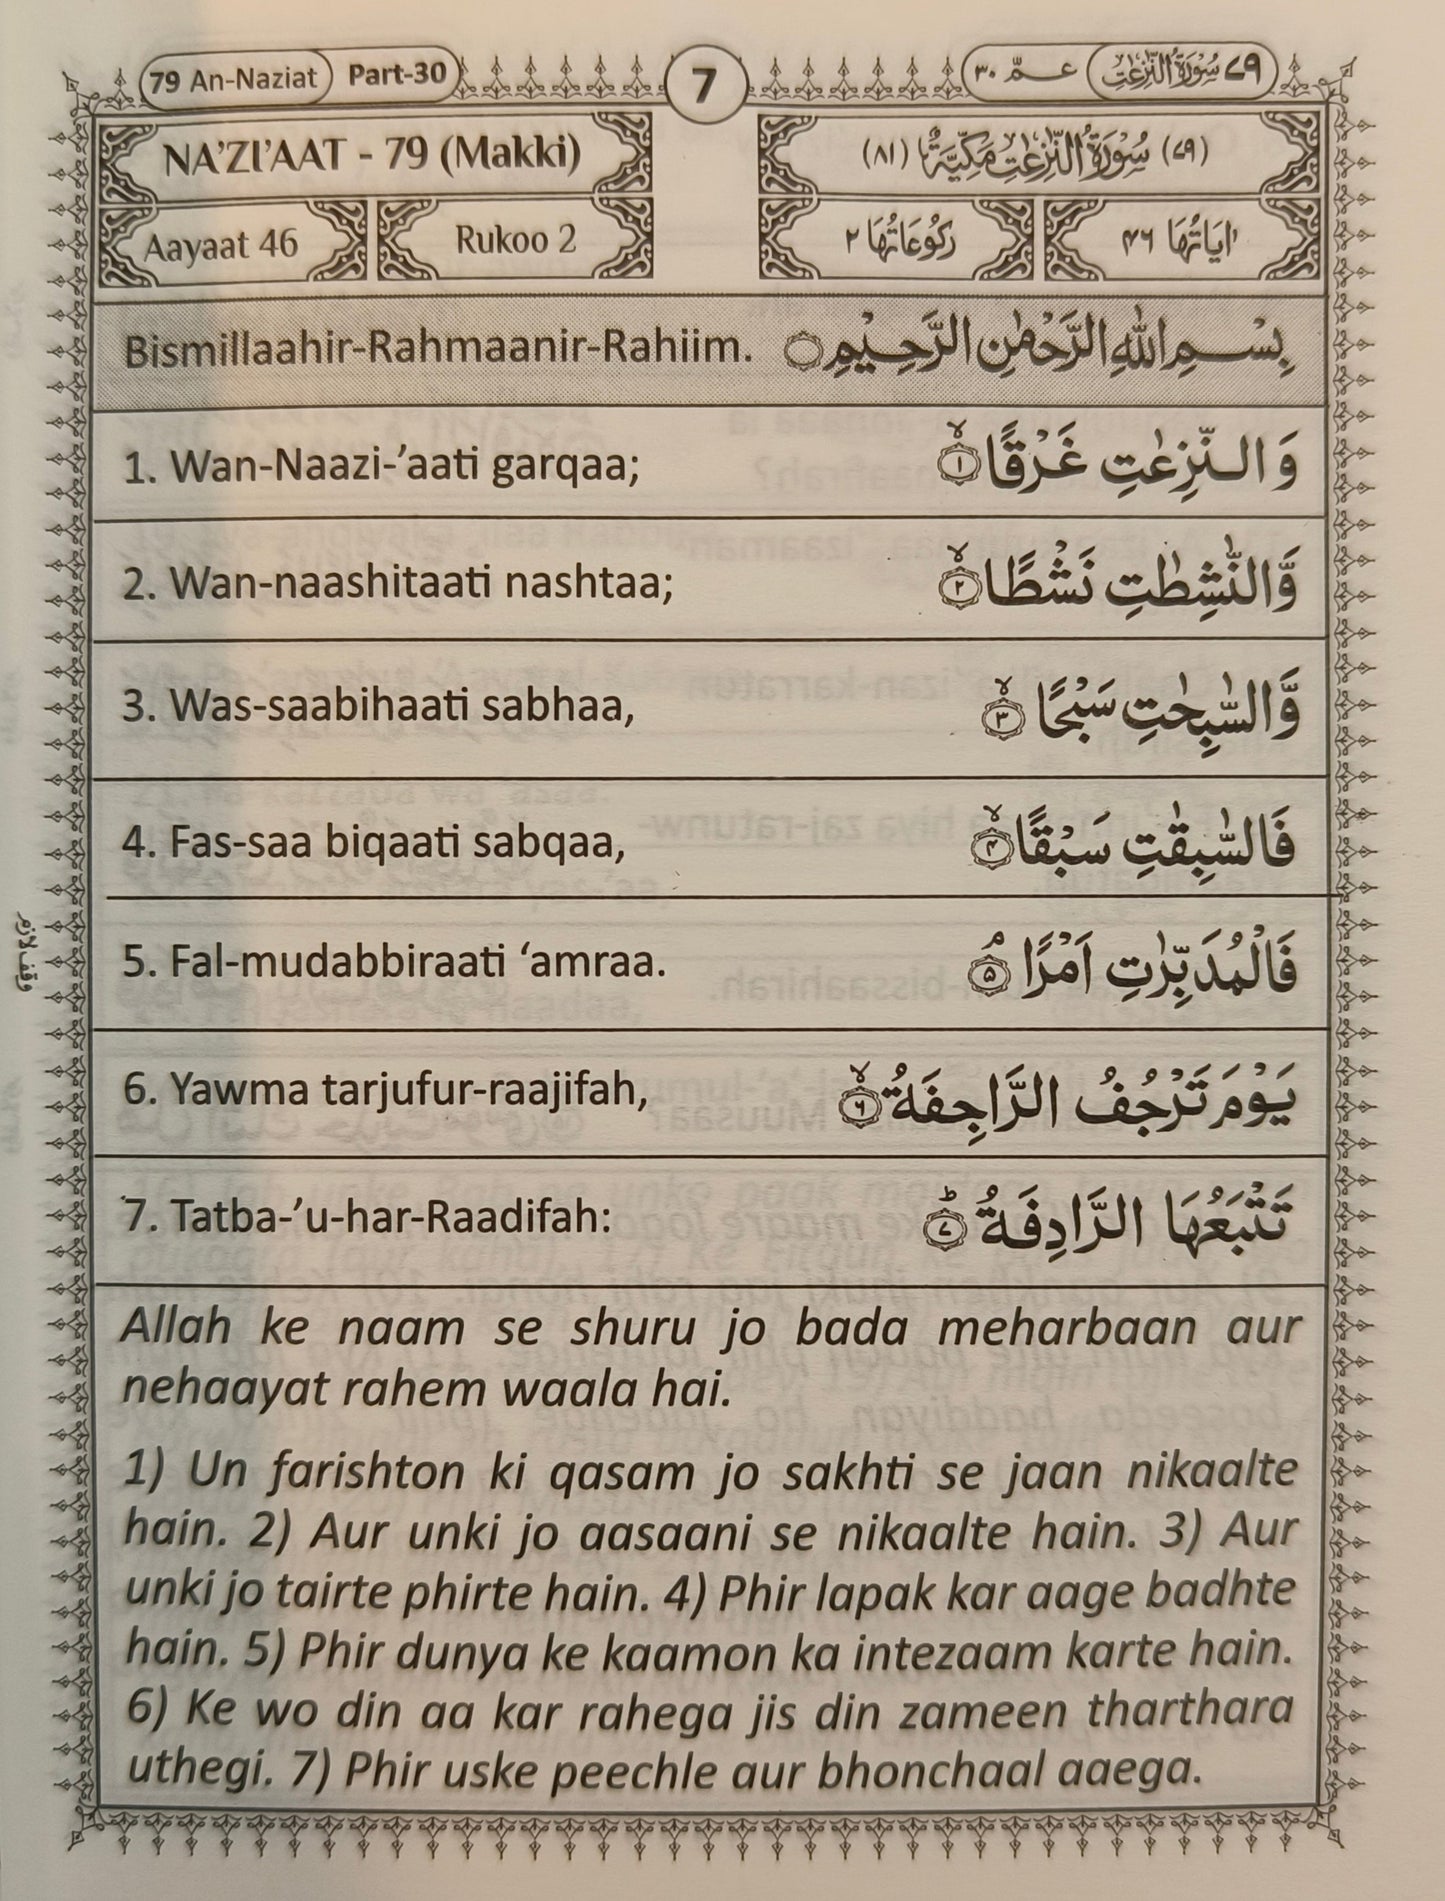 79 An-Naziat Part-30 7 عـمّ ٣٠ سُوْرَةُ النّٰزِعٰتِ ٧٩
NA'ZI'AAT - 79 (Makki) (٧٩) سُوْرَةُ النّٰزِعٰتِ مَكِّيَّةٌ (٨١)
Aayaat 46 Rukoo 2 اٰيَاتُهَا ٤٦ رُكُوْعَاتُهَا ٢
Bismillaahir-Rahmaanir-Rahiim. بِسْمِ اللّٰهِ الرَّحْمٰنِ الرَّحِيْمِ
1. Wan-Naazi-’aati garqaa; وَالنّٰزِعٰتِ غَرْقًا ۙ‏﴿۱﴾
2. Wan-naashitaati nashtaa; وَّالنّٰشِطٰتِ نَشْطًا ۙ‏﴿۲﴾
3. Was-saabihaati sabhaa, وَّالسّٰبِحٰتِ سَبْحًا ۙ‏﴿۳﴾
4. Fas-saa biqaati sabqaa, فَالسّٰبِقٰتِ سَبْقًا ۙ‏﴿۴﴾
5. Fal-mudabbiraati ‘amraa. فَالْمُدَبِّرٰتِ اَمْرًا ۘ‏﴿۵﴾
وقف لازم
6. Yawma tarjufur-raajifah, يَوْمَ تَرْجُفُ الرَّاجِفَةُ ۙ‏﴿۶﴾
7. Tatba-’u-har-Raadifah: تَتْبَعُهَا الرَّادِفَةُ ؕ‏﴿۷﴾
Allah ke naam se shuru jo bada meharbaan aur
nehaayat rahem waala hai.
1) Un farishton ki qasam jo sakhti se jaan nikaalte
hain. 2) Aur unki jo aasaani se nikaalte hain. 3) Aur
unki jo tairte phirte hain. 4) Phir lapak kar aage badhte
hain. 5) Phir dunya ke kaamon ka intezaam karte hain.
6) Ke wo din aa kar rahega jis din zameen tharthara
uthegi. 7) Phir uske peechle aur bhonchaal aaega.